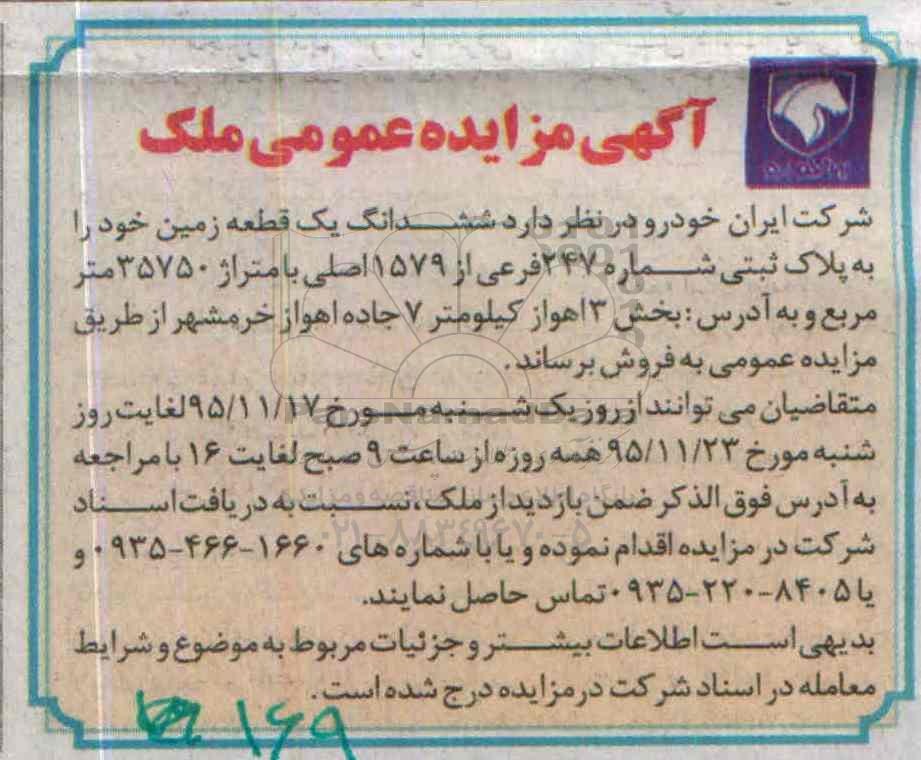 آگهی مزایده عمومی ملک
شرکت ایران خودرو در نظر دارد ششدانگ یک قطعه زمین خود را
به پلاک ثبتی شماره ۲۴۷ فرعی از ۱۵۷۹ اصلی با متراژ ۳۵۷۵۰ متر
مربع و به آدرس: بخش ۳ اهواز کیلومتر ۷ جاده اهواز خرمشهر از طریق
مزایده عمومی به فروش برساند.
متقاضیان می توانند از روز یک شنبه مورخ ۹۵/۱۱/۱۷ لغایت روز
شنبه مورخ ۹۵/۱۱/۲۳ همه روزه از ساعت ۹ صبح لغایت ۱۶ با مراجعه
به آدرس فوق الذکر ضمن بازدید از ملک، نسبت به دریافت اسناد
شرکت در مزایده اقدام نموده و یا با شماره های ۱۶۶۰-۴۶۶-۰۹۳۵ و
یا ۸۴۰۵-۲۲۰-۰۹۳۵ تماس حاصل نمایند.
بدیهی است اطلاعات بیشتر و جزئیات مربوط به موضوع و شرایط
معامله در اسناد شرکت در مزایده درج شده است.
۱۶۹
۰۲۱-۸۸۳۴۹۶۷۰-۵